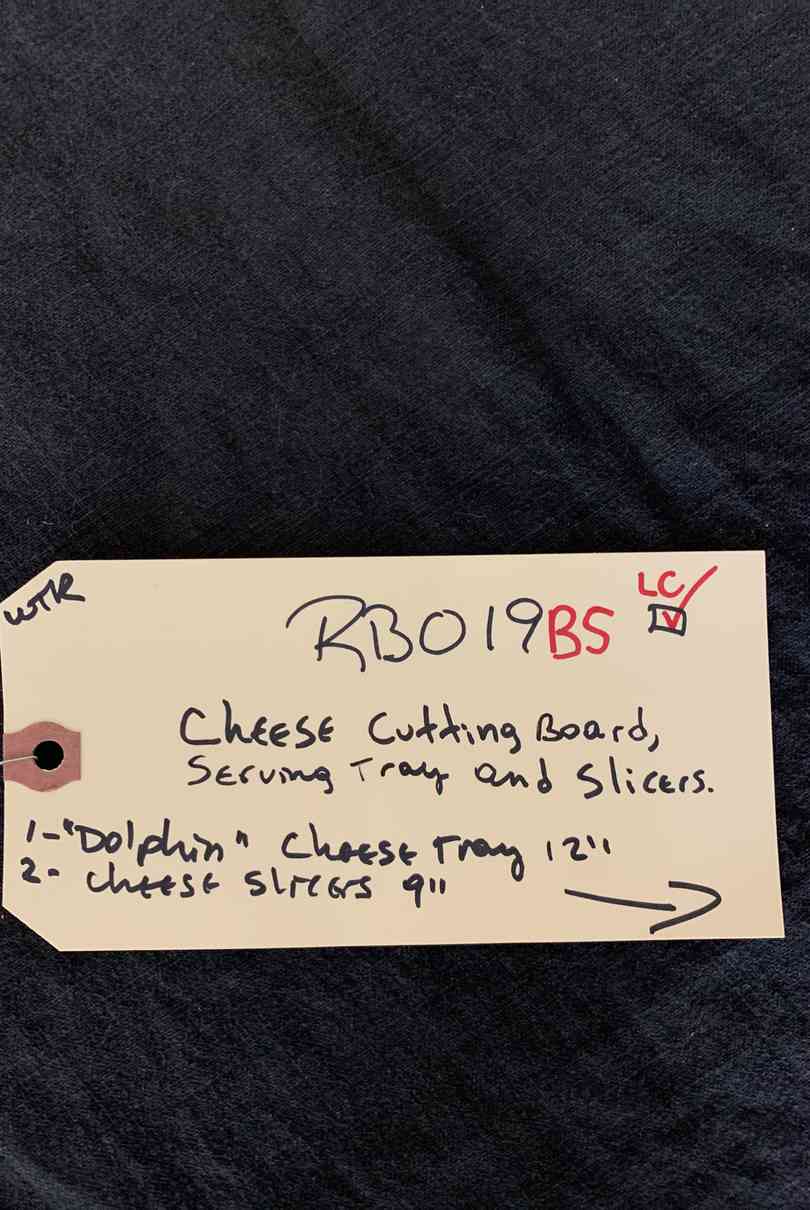 WTR
LC
RB019BS
Cheese Cutting Board,
Serving Tray and Slicers.
1-"Dolphin" Cheese Tray 12"
2- Cheese Slicers 9"